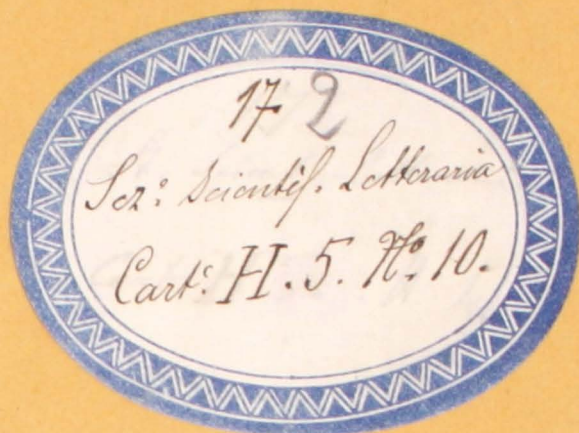 17 2
Sez: Scientif. Letteraria
Cart: H. 5. No. 10.